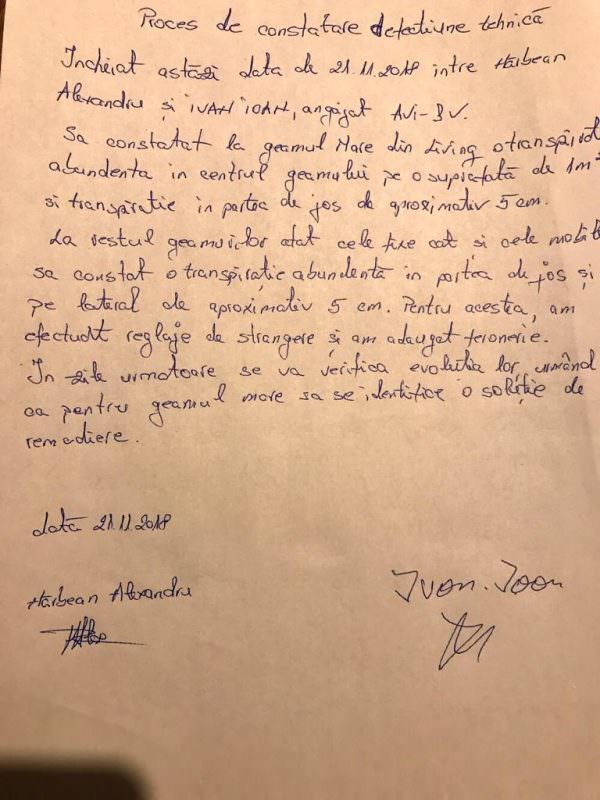 Proces de constatare defectiune tehnică
Incheiat astăzi data de 21.11.2018 intre Hârbean
Alexandru și IVAN IOAN, angajat AVI-BV.
Sa constatat la geamul Mare din Living o transpirat
abundenta in centrul geamului pe o suprafată de 1m²
si transpiratie in partea de jos de aproximativ 5 cm.
La restul geamurilor atat cele fixe cat și cele mobile
sa constat o transpirație abundentă in partea de jos și
pe lateral de aproximativ 5 cm. Pentru acestea, am
efectuat reglaje de strangere și am adaugat feronerie.
In zile urmatoare se va verifica evolutia lor, urmând
ca pentru geamul mare sa se identifice o soluție de
remediere.
dată 21.11.2018
Hârbean Alexandru
Ivan. Ioan